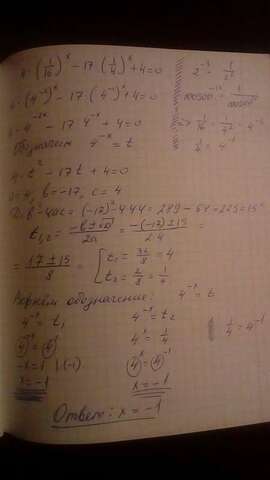 4·(1/16)^x - 17·(1/4)^x + 4 = 0
4·(4^-2)^x - 17·(4^-1)^x + 4 = 0
4·4^-2x - 17·4^-x + 4 = 0
Обозначим 4^-x = t
4·t^2 - 17t + 4 = 0
a = 4, b = -17, c = 4
D = b^2 - 4ac = (-17)^2 - 4·4·4 = 289 - 64 = 225 = 15^2
t1,2 = (-b ± √D)/2a = (-(-17) ± 15)/2·4 =
= (17 ± 15)/8 = [ t1 = 32/8 = 4
t2 = 2/8 = 1/4
Вернём обозначение: 4^-x = t
4^-x = t1
4^-x = 4^1
-x = 1 |·(-1)
x = -1
4^-x = t2
4^x = 1/4
4^x = 4^-1
x = -1
1/4 = 4^-1
Ответ: x = -1
2^-2 = 1/2^2
=> 1/16 = 1/4^2 = 4^-2
1/4 = 4^-1